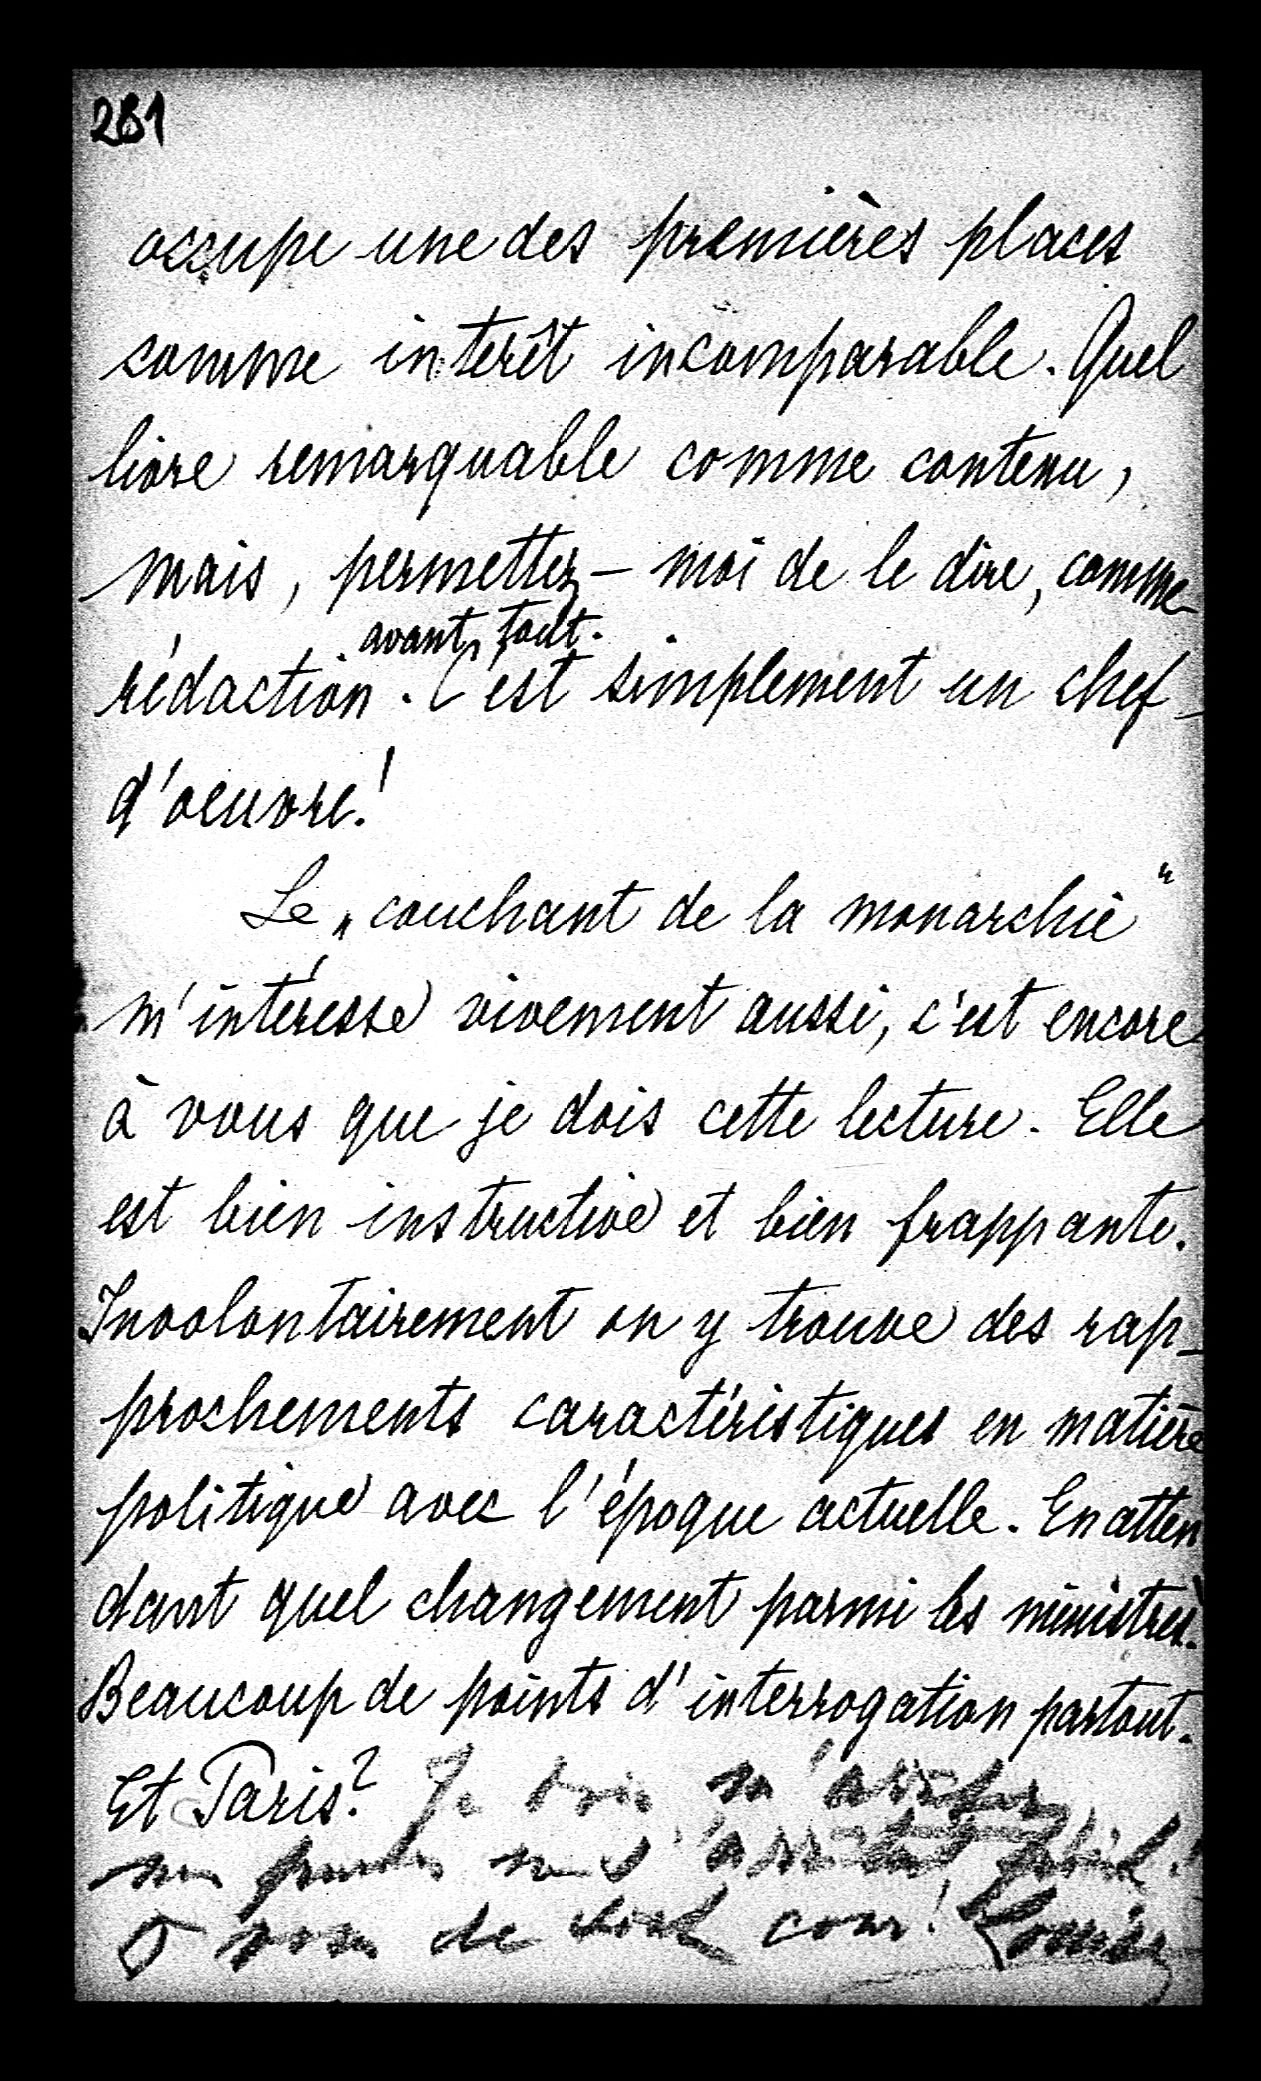 281
occupe une des premières places
comme interêt incomparable. Quel
livre remarquable comme contenu,
mais, permettez-moi de le dire, comme
avant tout.
rédaction. C'est simplement un chef-
d'oeuvre!
Le „couchant de la monarchie“
m'intéresse vivement aussi, c'est encore
à vous que je dois cette lecture. Elle
est bien instructive et bien frappante.
Involontairement on y trouve des rap-
prochements caractéristiques en matière
politique avec l'époque actuelle. En atten
dant quel changement parmi les ministres.
Beaucoup de points d'interrogation partout.
Et Paris? Je dois m'arrêter
A vous de tout coeur! Louise